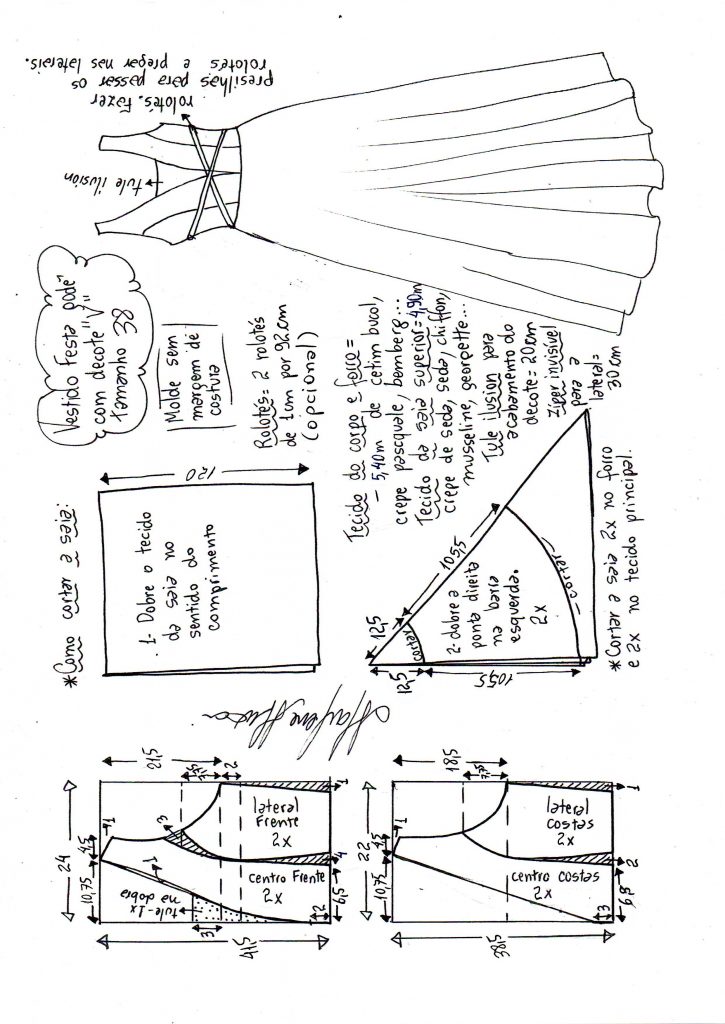 Vestido Festa "pode"
com decote "V"
tamanho 38
Molde sem
margem de
costura
Rolotés = 2 rolotés
de 1cm por 92cm
(opcional)
tule ilusión
rolotés. Fazer
presilhas para passar os
rolotés e pregar nas laterais.
Tecido do corpo e forro =
- 5,40m de cetim bucol,
crepe pascquale, bemberg...
Tecido da saia superior = 4,90m
crepe de seda, seda, chiffon,
musseline, georgette...
Tule ilusion para
acabamento do
decote = 20cm
Zíper invisível
para a
lateral =
30cm
*Como cortar a saia:
120
1- Dobre o tecido
da saia no
sentido do
comprimento
12,5
105,5
cortar
12,5
105,5
2- dobre a
ponta direita
na barra
esquerda.
2x
- cortar -
*Cortar a saia 2x no forro
e 2x no tecido principal.
24
10,75
4,5
1
21,5
7,25
2
3
lateral
Frente
2x
1
centro Frente
2x
tule - 1x
na dobra
3
2
6,5
4
1
41,5
22
10,75
4,5
1
18,5
7,25
lateral
costas
2x
centro costas
2x
3
6,8
2
1
38,5